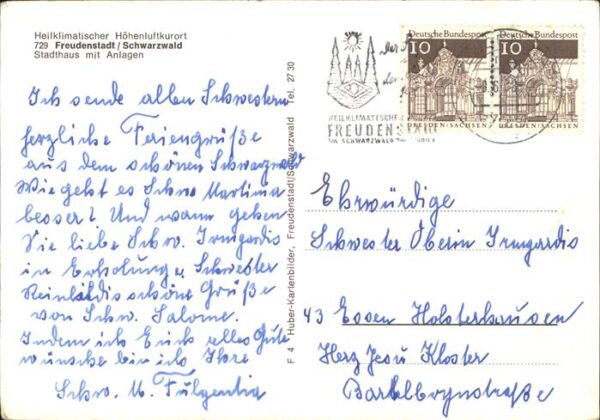 Heilklimatischer Höhenluftkurort
729 Freudenstadt / Schwarzwald
Stadthaus mit Anlagen
Ich sende allen Schwestern
herzliche Feriengrüße
aus dem schönen Schwarzwald
Wie geht es Schw Martina
besser? Und wann gehen
Sie liebe Schw. Irmgardis
in Erholung. Schwester
Reinhildis schöne Grüße
von Schw. Salome.
Indem ich Euch alles Gute
wünsche bin ich Ihre
Schw. M. Fulgentia
F 4 Huber-Kartenbilder, Freudenstadt/Schwarzwald Tel. 27 30
HEILKLIMATISCHER
FREUDENSTADT
IM SCHWARZWALD
Deutsche Bundespost
10
DRESDEN/SACHSEN
Deutsche Bundespost
10
DRESDEN/SACHSEN
Ehrwürdige
Schwester Oberin Irmgardis
43 Essen Holsterhausen
Herz Jesu Kloster